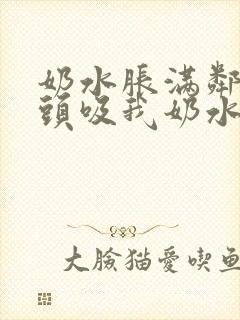 奶水脹滿鄰
頭吸我奶水
大臉猫愛喫鱼